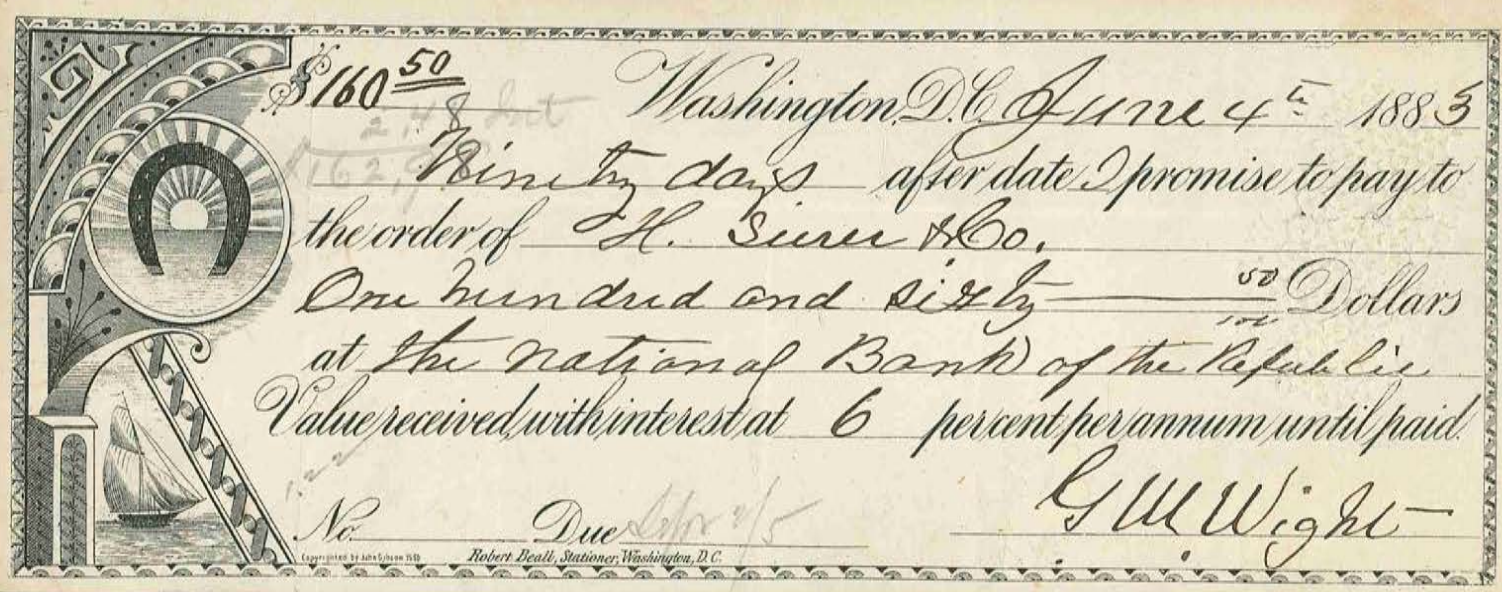 $160 50 Washington, D.C. June 4th 1883
2.48 Int
$162.98
Ninety days after date I promise to pay to
the order of H. & Co.
One hundred and sixty 50/100 Dollars
at the National Bank of the Republic
Value received, with interest at 6 per cent per annum until paid.
No. Due Sept 2/5 G W Wight
Copyrighted by John Gibson 1880 Robert Beall, Stationer, Washington, D.C.